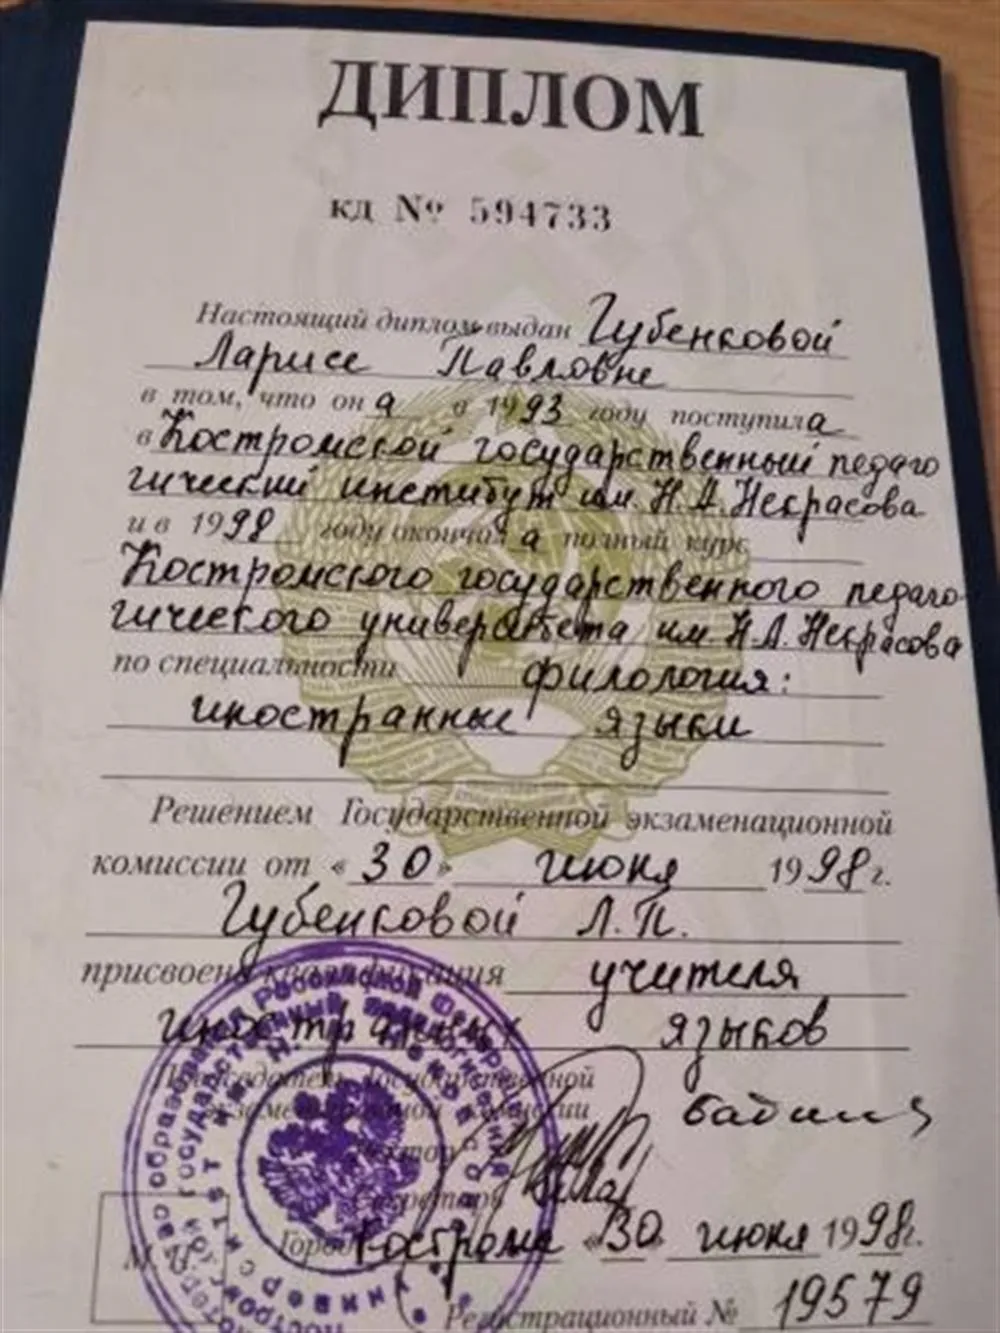 ДИПЛОМ
КД № 594733
Настоящий диплом выдан Губенковой
Ларисе Павловне
в том, что он а в 1993 году поступил а
в Костромской государственный педаго
гический институт им. Н.А.Некрасова
и в 1998 году окончил а полный курс
Костромского государственного педаго-
гического университета им Н.А.Некрасова
по специальности филология:
иностранные языки
Решением Государственной экзаменационной
комиссии от «30» июня 1998 г.
Губенковой Л.П.
присвоена квалификация учителя
иностранных языков
Председатель Государственной
экзаменационной комиссии
Ректор
Секретарь
Город Кострома «30» июня 1998г.
М. П.
Регистрационный № 19579